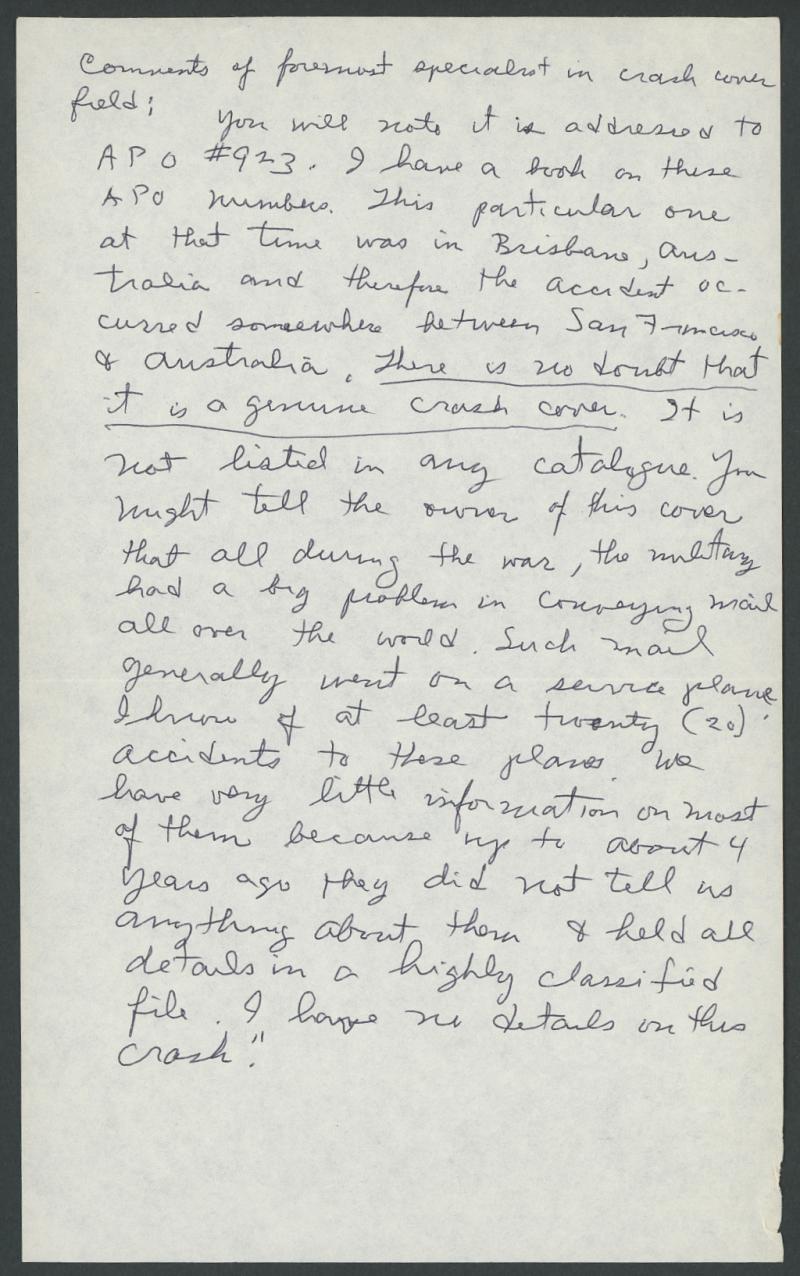 Comments of foremost specialist in crash cover
field;
You will note it is addressed to
APO #923. I have a book on these
APO numbers. This particular one
at that time was in Brisbane, Aus-
tralia and therefore the accident oc-
curred somewhere between San Francisco
& Australia. There is no doubt that
it is a genuine crash cover. It is
not listed in any catalogue. You
might tell the owner of this cover
that all during the war, the military
had a big problem in conveying mail
all over the world. Such mail
generally went on a service plane.
I know of at least twenty (20)
accidents to these planes. We
have very little information on most
of them because up to about 4
years ago they did not tell us
anything about them & held all
details in a highly classified
file. I have no details on this
crash."